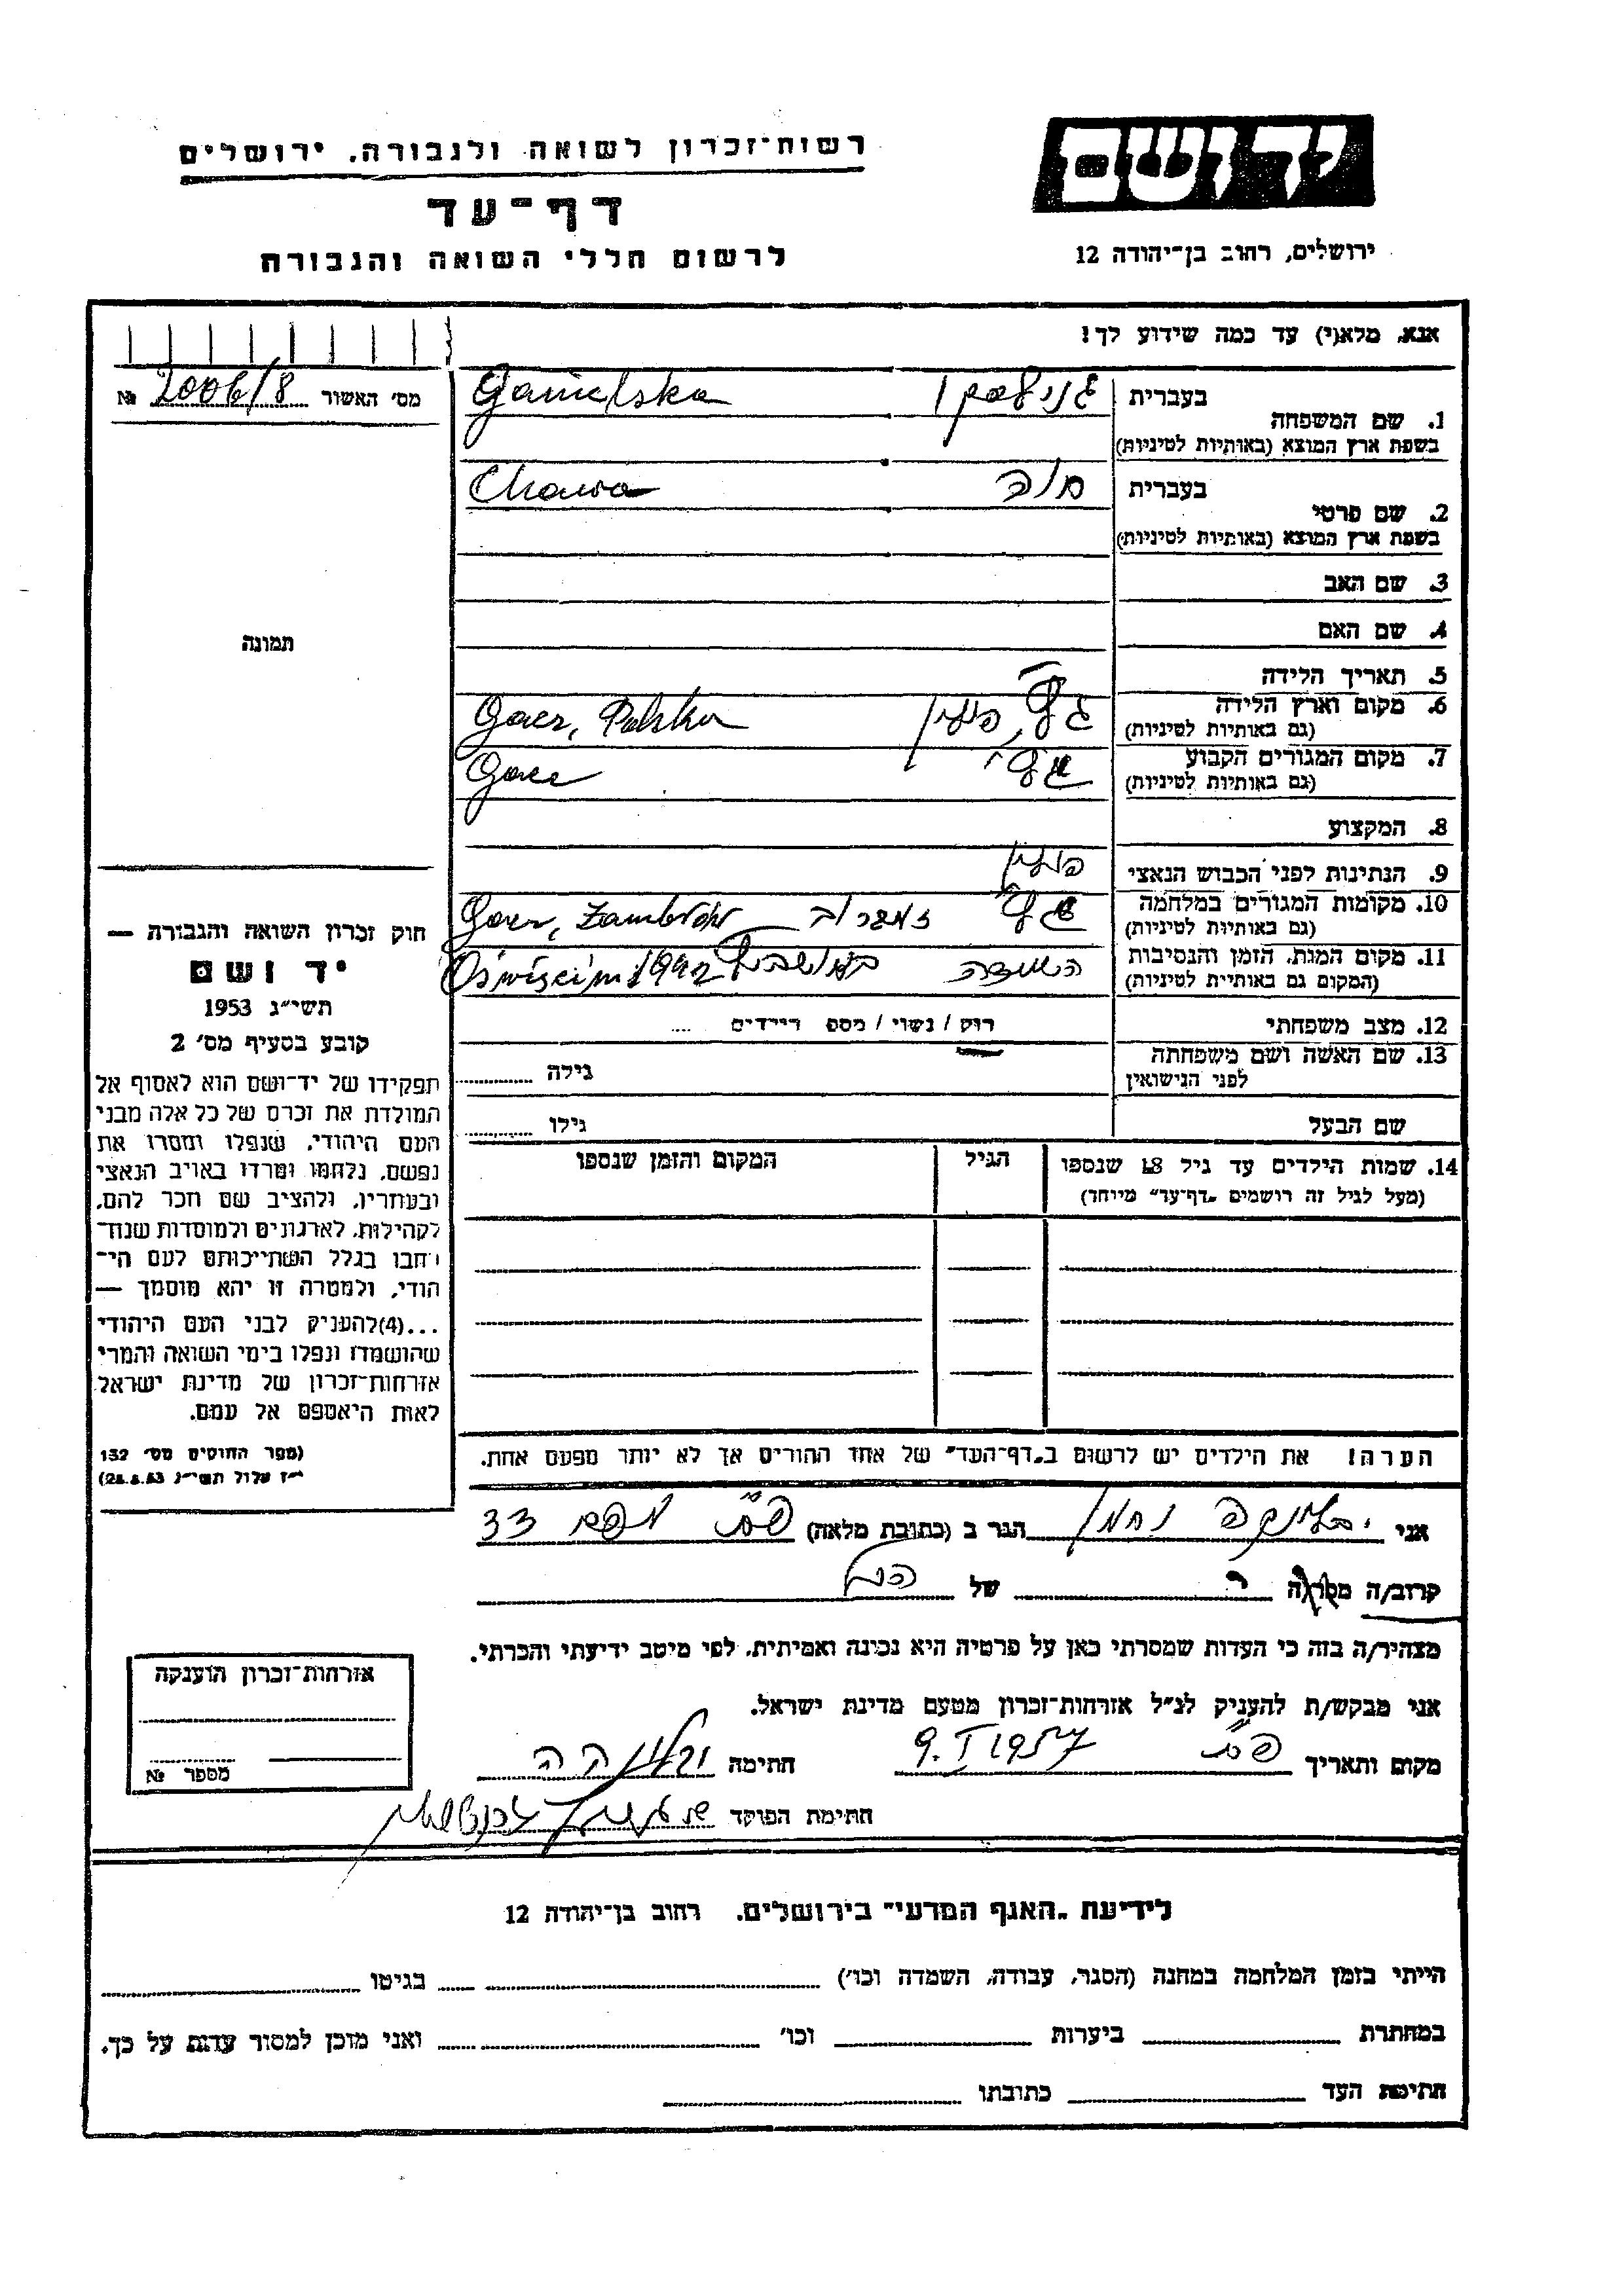 רשות־זכרון לשואה ולגבורה, ירושלים
דף־עד
לרשום חללי השואה והגבורה
יד ושם
ירושלים, רחוב בן־יהודה 12
אנא, מלא(י) עד כמה שידוע לך!
מס' האשור 2006/8 №
1. שם המשפחה
בעברית
Ganielska
בשפת ארץ המוצא (באותיות לטיניות)
2. שם פרטי
בעברית חוה
Chawa
בשפת ארץ המוצא (באותיות לטיניות)
3. שם האב
4. שם האם
5. תאריך הלידה
6. מקום וארץ הלידה
(גם באותיות לטיניות)
פולין Polska
7. מקום המגורים הקבוע
(גם באותיות לטיניות)
8. המקצוע
9. הנתינות לפני הכבוש הנאצי פולין
10. מקומות המגורים במלחמה
(גם באותיות לטיניות)
זמברוב Zambrów
11. מקום המות, הזמן והנסיבות
(המקום גם באותיות לטיניות)
הושמדה באושביץ Oświęcim 1942
12. מצב משפחתי
רווק / נשוי / מספר הילדים ....
13. שם האשה ושם משפחתה
לפני הנישואין
גילה
שם הבעל
גילו
14. שמות הילדים עד גיל 18 שנספו
(מעל לגיל זה רושמים "דף־עד" מיוחד)
הגיל
המקום והזמן שנספו
הערה! את הילדים יש לרשום ב"דף־העד" של אחד ההורים אך לא יותר מפעם אחת.
תמונה
חוק זכרון השואה והגבורה —
יד ושם
תשי"ג 1953
קובע בסעיף מס' 2
תפקידו של יד־ושם הוא לאסוף אל
המולדת את זכרם של כל אלה מבני
העם היהודי, שנפלו ומסרו את
נפשם, נלחמו ומרדו באויב הנאצי
ובעוזריו, ולהציב שם וזכר להם,
לקהילות, לארגונים ולמוסדות שנח־
רבו בגלל השתייכותם לעם הי־
הודי, ולמטרה זו יהא מוסמך —
...(4) להעניק לבני העם היהודי
שהושמדו ונפלו בימי השואה והמרי
אזרחות־זכרון של מדינת ישראל
לאות היאספם אל עמם.
(ספר החוקים מס' 132
י"ז אלול תשי"ג 28.8.53)
אני נחמן הגר ב (כתובת מלאה) 33
קרוב/ה מכר/ה של
מצהיר/ה בזה כי העדות שמסרתי כאן על פרטיה היא נכונה ואמיתית, לפי מיטב ידיעתי והכרתי.
אני מבקש/ת להעניק לנ"ל אזרחות־זכרון מטעם מדינת ישראל.
מקום ותאריך 9.I 1957 חתימה
חתימת הפוקד
אזרחות־זכרון הוענקה
מספר №
לידיעת "האגף המדעי" בירושלים, רחוב בן־יהודה 12
הייתי בזמן המלחמה במחנה (הסגר, עבודה, השמדה וכו') בגיטו
במחתרת ביערות וכו' ואני מוכן למסור עדות על כך.
חתימת העד כתובתו